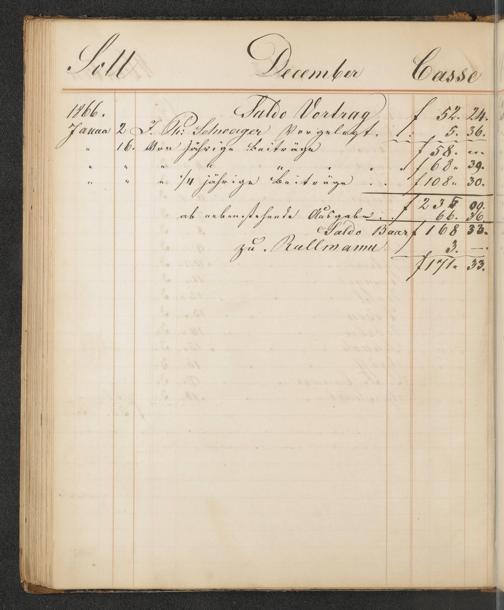 Soll December Casse
1866. Saldo Vortrag f 52. 24.
Januar 2 J. Ph: Schwager Vorgelegt. f: 5. 36.
" 16. Von jährige Beiträge f 58. —
" " " " " " f 68. 39.
" " " 1/4 jährige Beiträge . . f 108. 30.
f 235 09.
ab nebenstehende Ausgaben . . f 66. 36
Saldo Baar f 168 33.
zu . Kullmann f 3. —
f 171. 33.